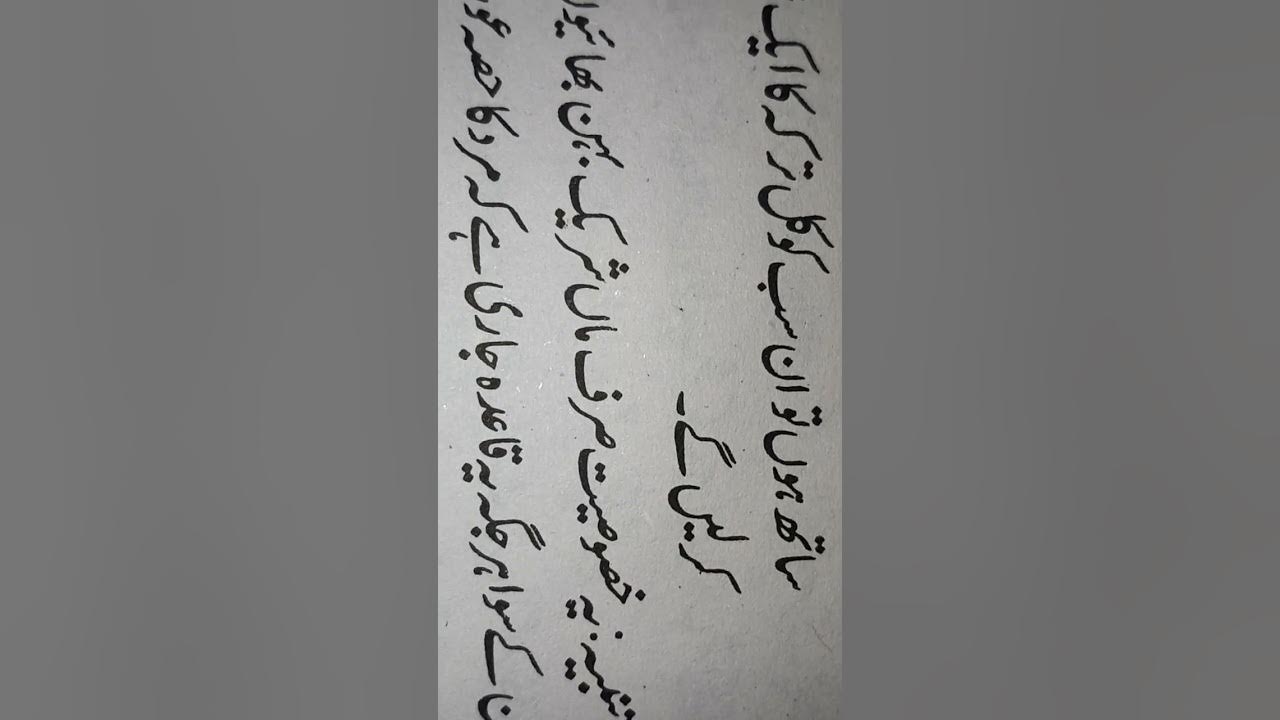 ساتھ ہوں تو ان سب کو کل ترکہ کا ایک
کر لیں گے۔
تنبیہ: یہ خصوصیت صرف ماں شریک بہن بھائیوں
ان کے سوا ہر جگہ یہ قاعدہ جاری ہے کہ مرد کا حصہ